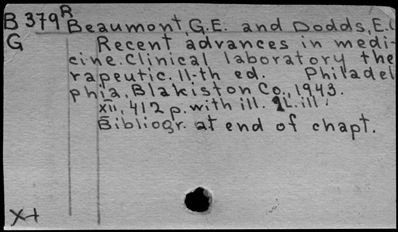 B 379 R Beaumont, G.E. and Dodds, E.C
G Recent advances in medi-
cine. Clinical laboratory the
rapeutic. 11-th ed. Philadel
phia, Blakiston Co., 1943.
XII, 412 p. with ill. 2L. ill.
Bibliogr. at end of chapt.
X+